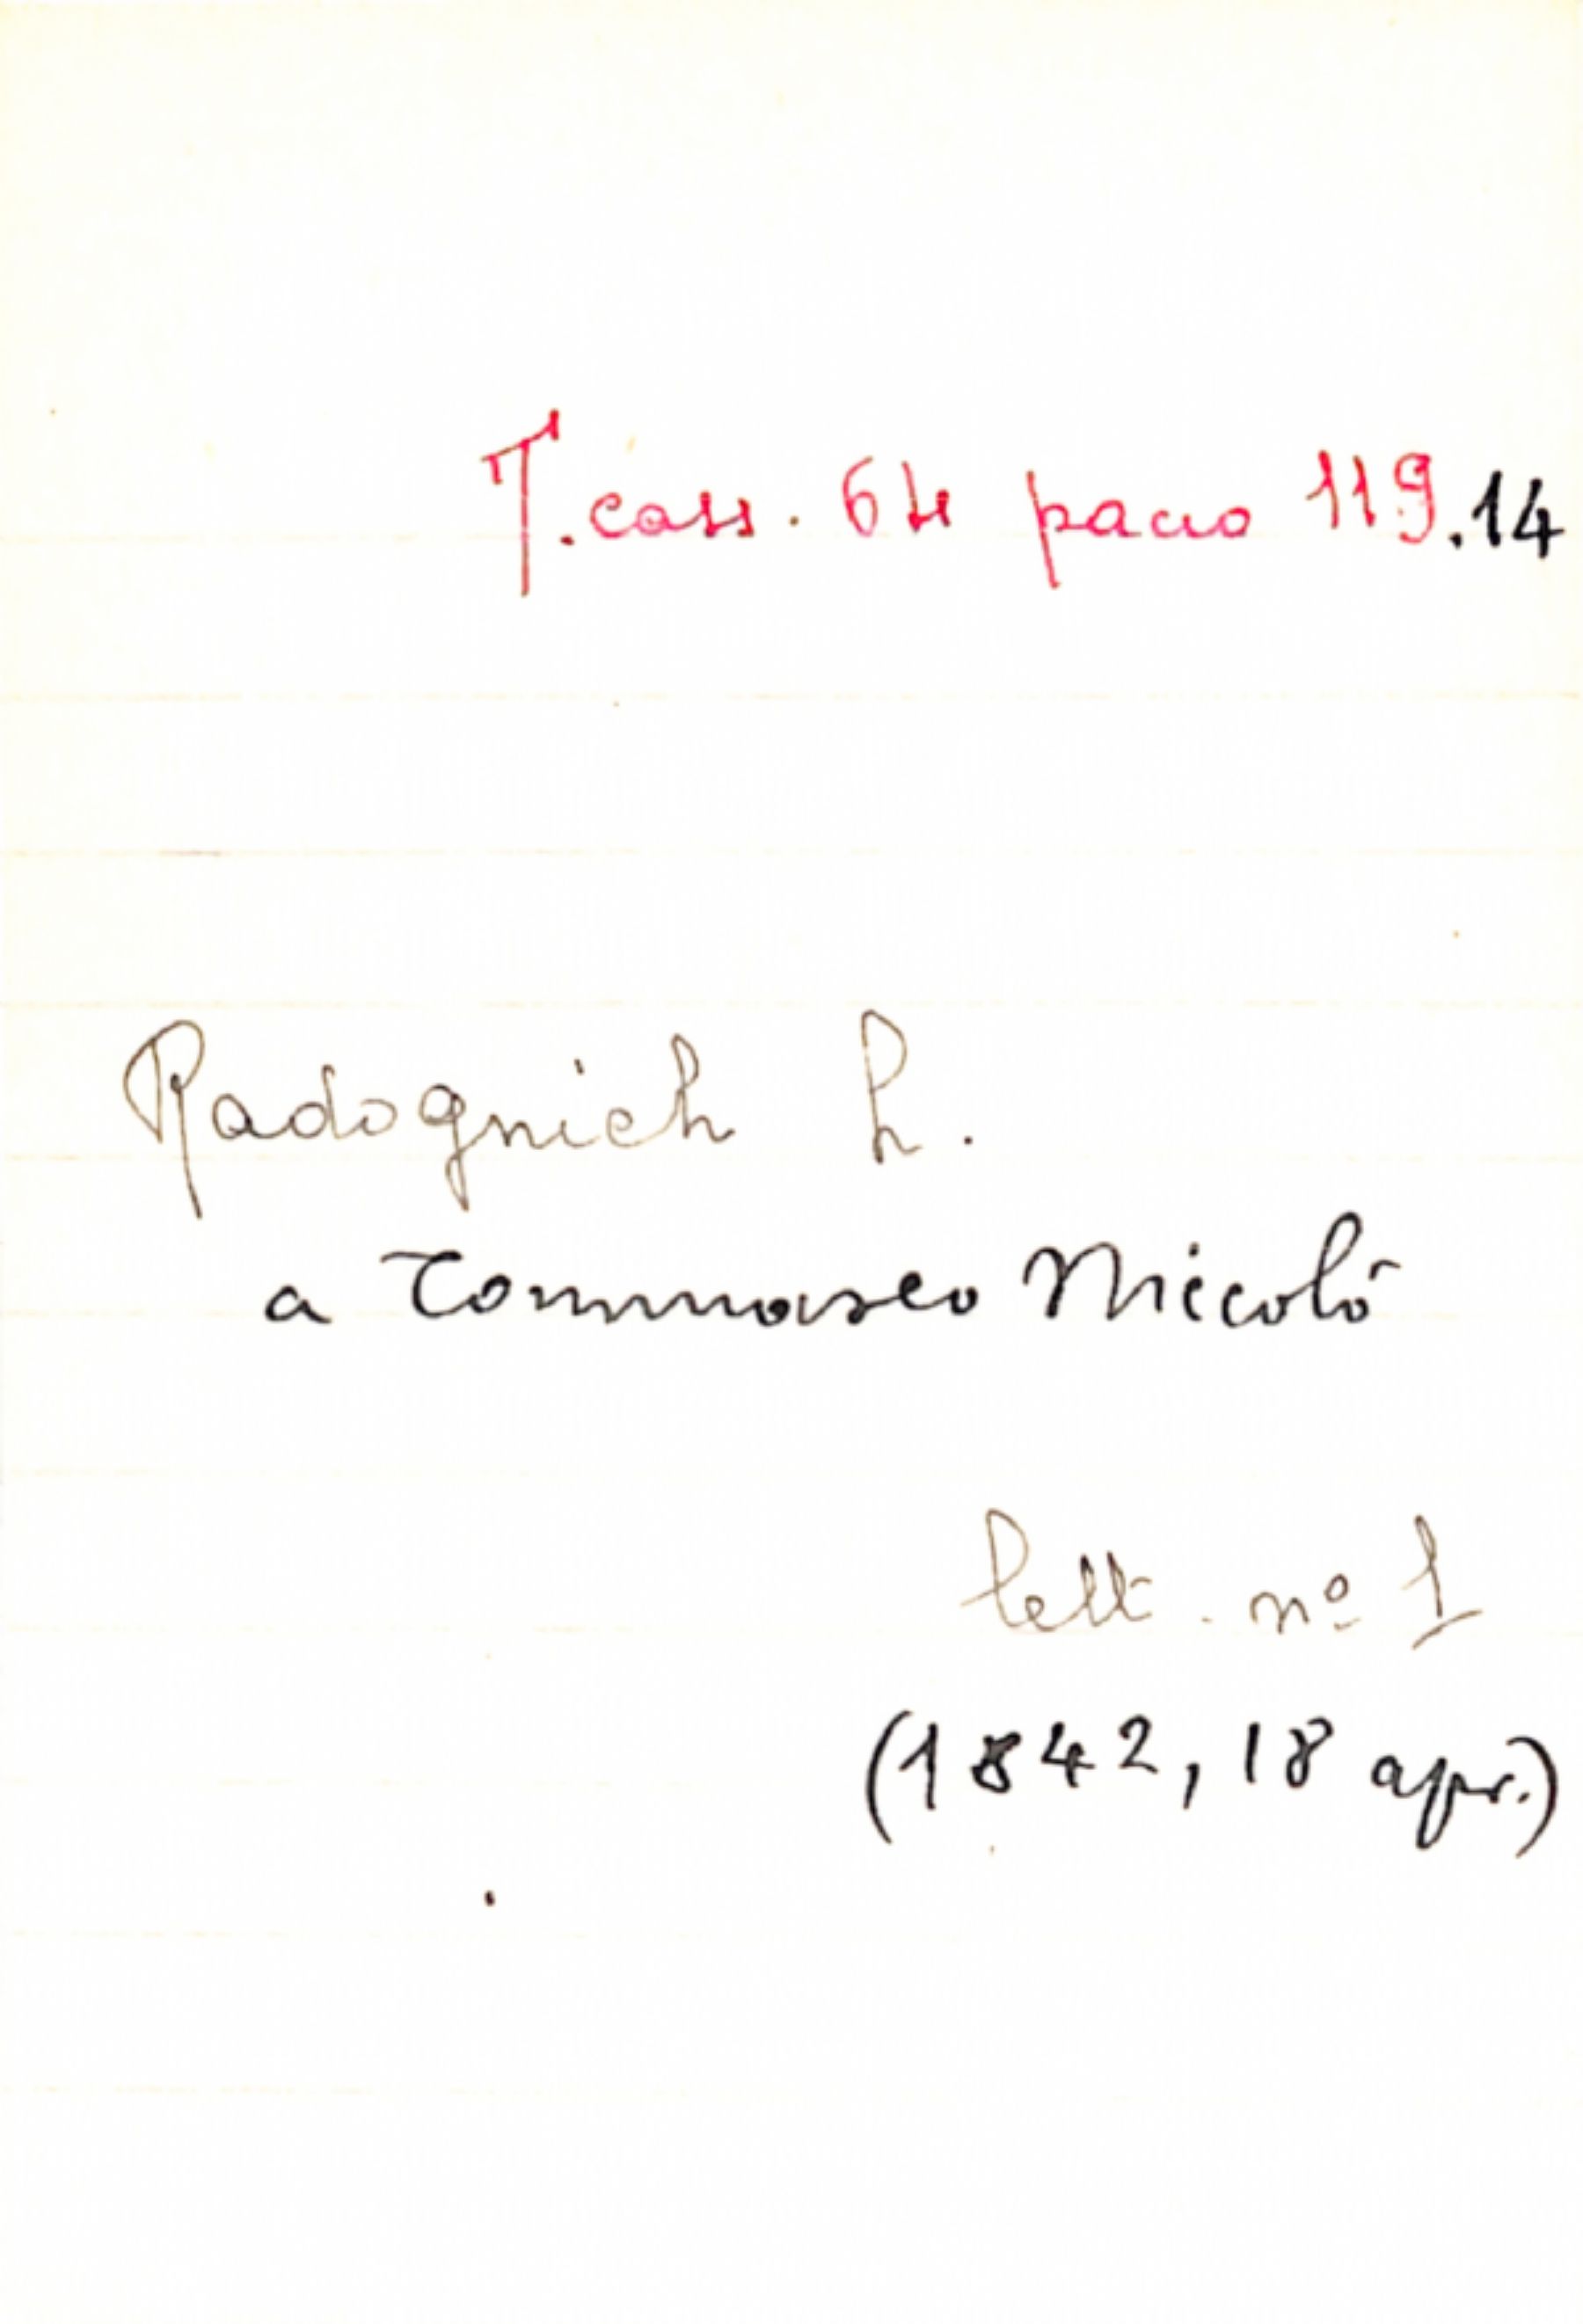 T. cass. 64 pacco 119.14
Radognich L.
a Tommaseo Niccolò
lett. nº 1
(1842, 18 apr.)